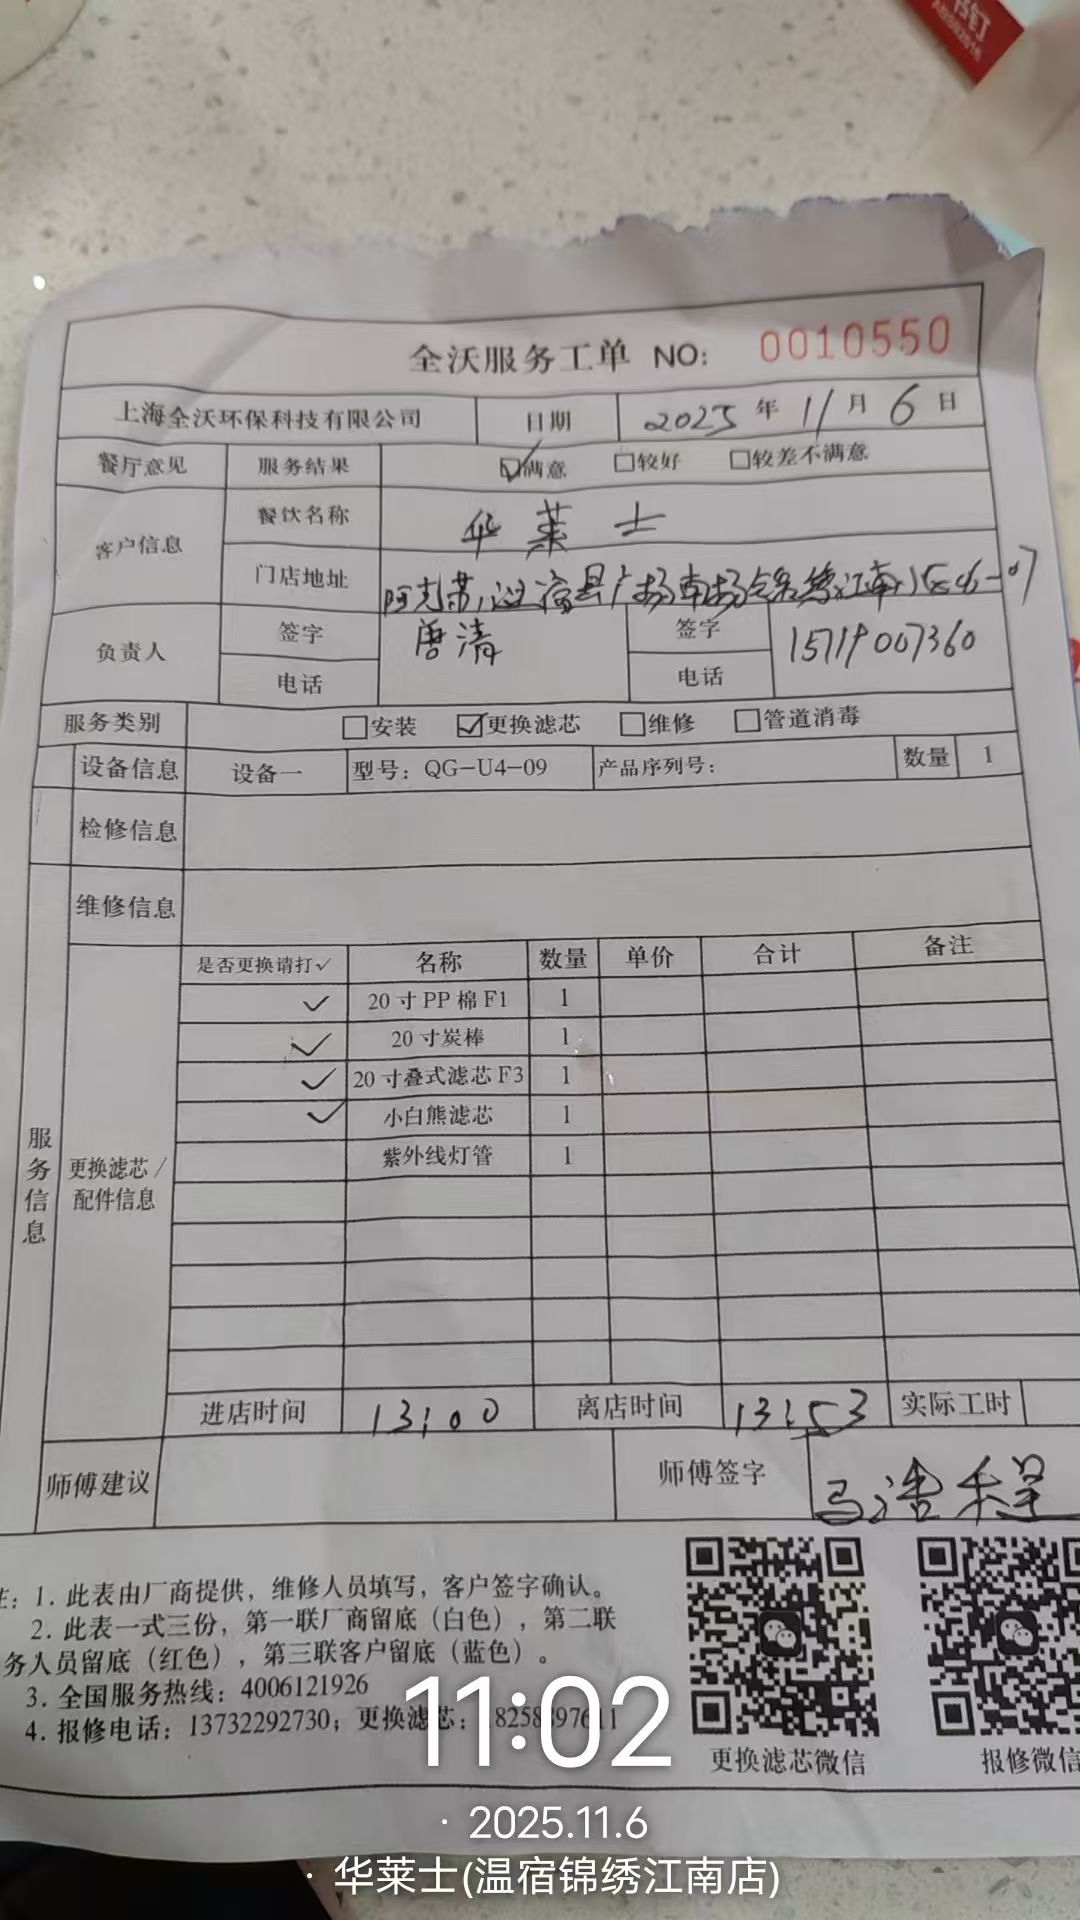 全沃服务工单 NO: 0010550
上海全沃环保科技有限公司 日期 2025年11月6日
餐厅意见 服务结果 ☑满意 □较好 □较差不满意
客户信息 餐饮名称 华莱士
门店地址 阿克苏,温宿县广场南场锦绣江南
负责人 签字 唐清 签字 15719007360
电话 电话
服务类别 □安装 ☑更换滤芯 □维修 □管道消毒
设备信息 设备一 型号: QG-U4-09 产品序列号: 数量 1
检修信息
维修信息
是否更换请打✓ 名称 数量 单价 合计 备注
✓ 20寸PP棉F1 1
✓ 20寸炭棒 1
✓ 20寸叠式滤芯F3 1
✓ 小白熊滤芯 1
紫外线灯管 1
服务信息
更换滤芯/
配件信息
进店时间 13:00 离店时间 13:53 实际工时
师傅建议 师傅签字 马浩程
注: 1. 此表由厂商提供，维修人员填写，客户签字确认。
2. 此表一式三份，第一联厂商留底（白色），第二联
务人员留底（红色），第三联客户留底（蓝色）。
3. 全国服务热线: 4006121926
4. 报修电话: 13732292730; 更换滤芯:
更换滤芯微信 报修微信
11:02
· 2025.11.6
· 华莱士(温宿锦绣江南店)